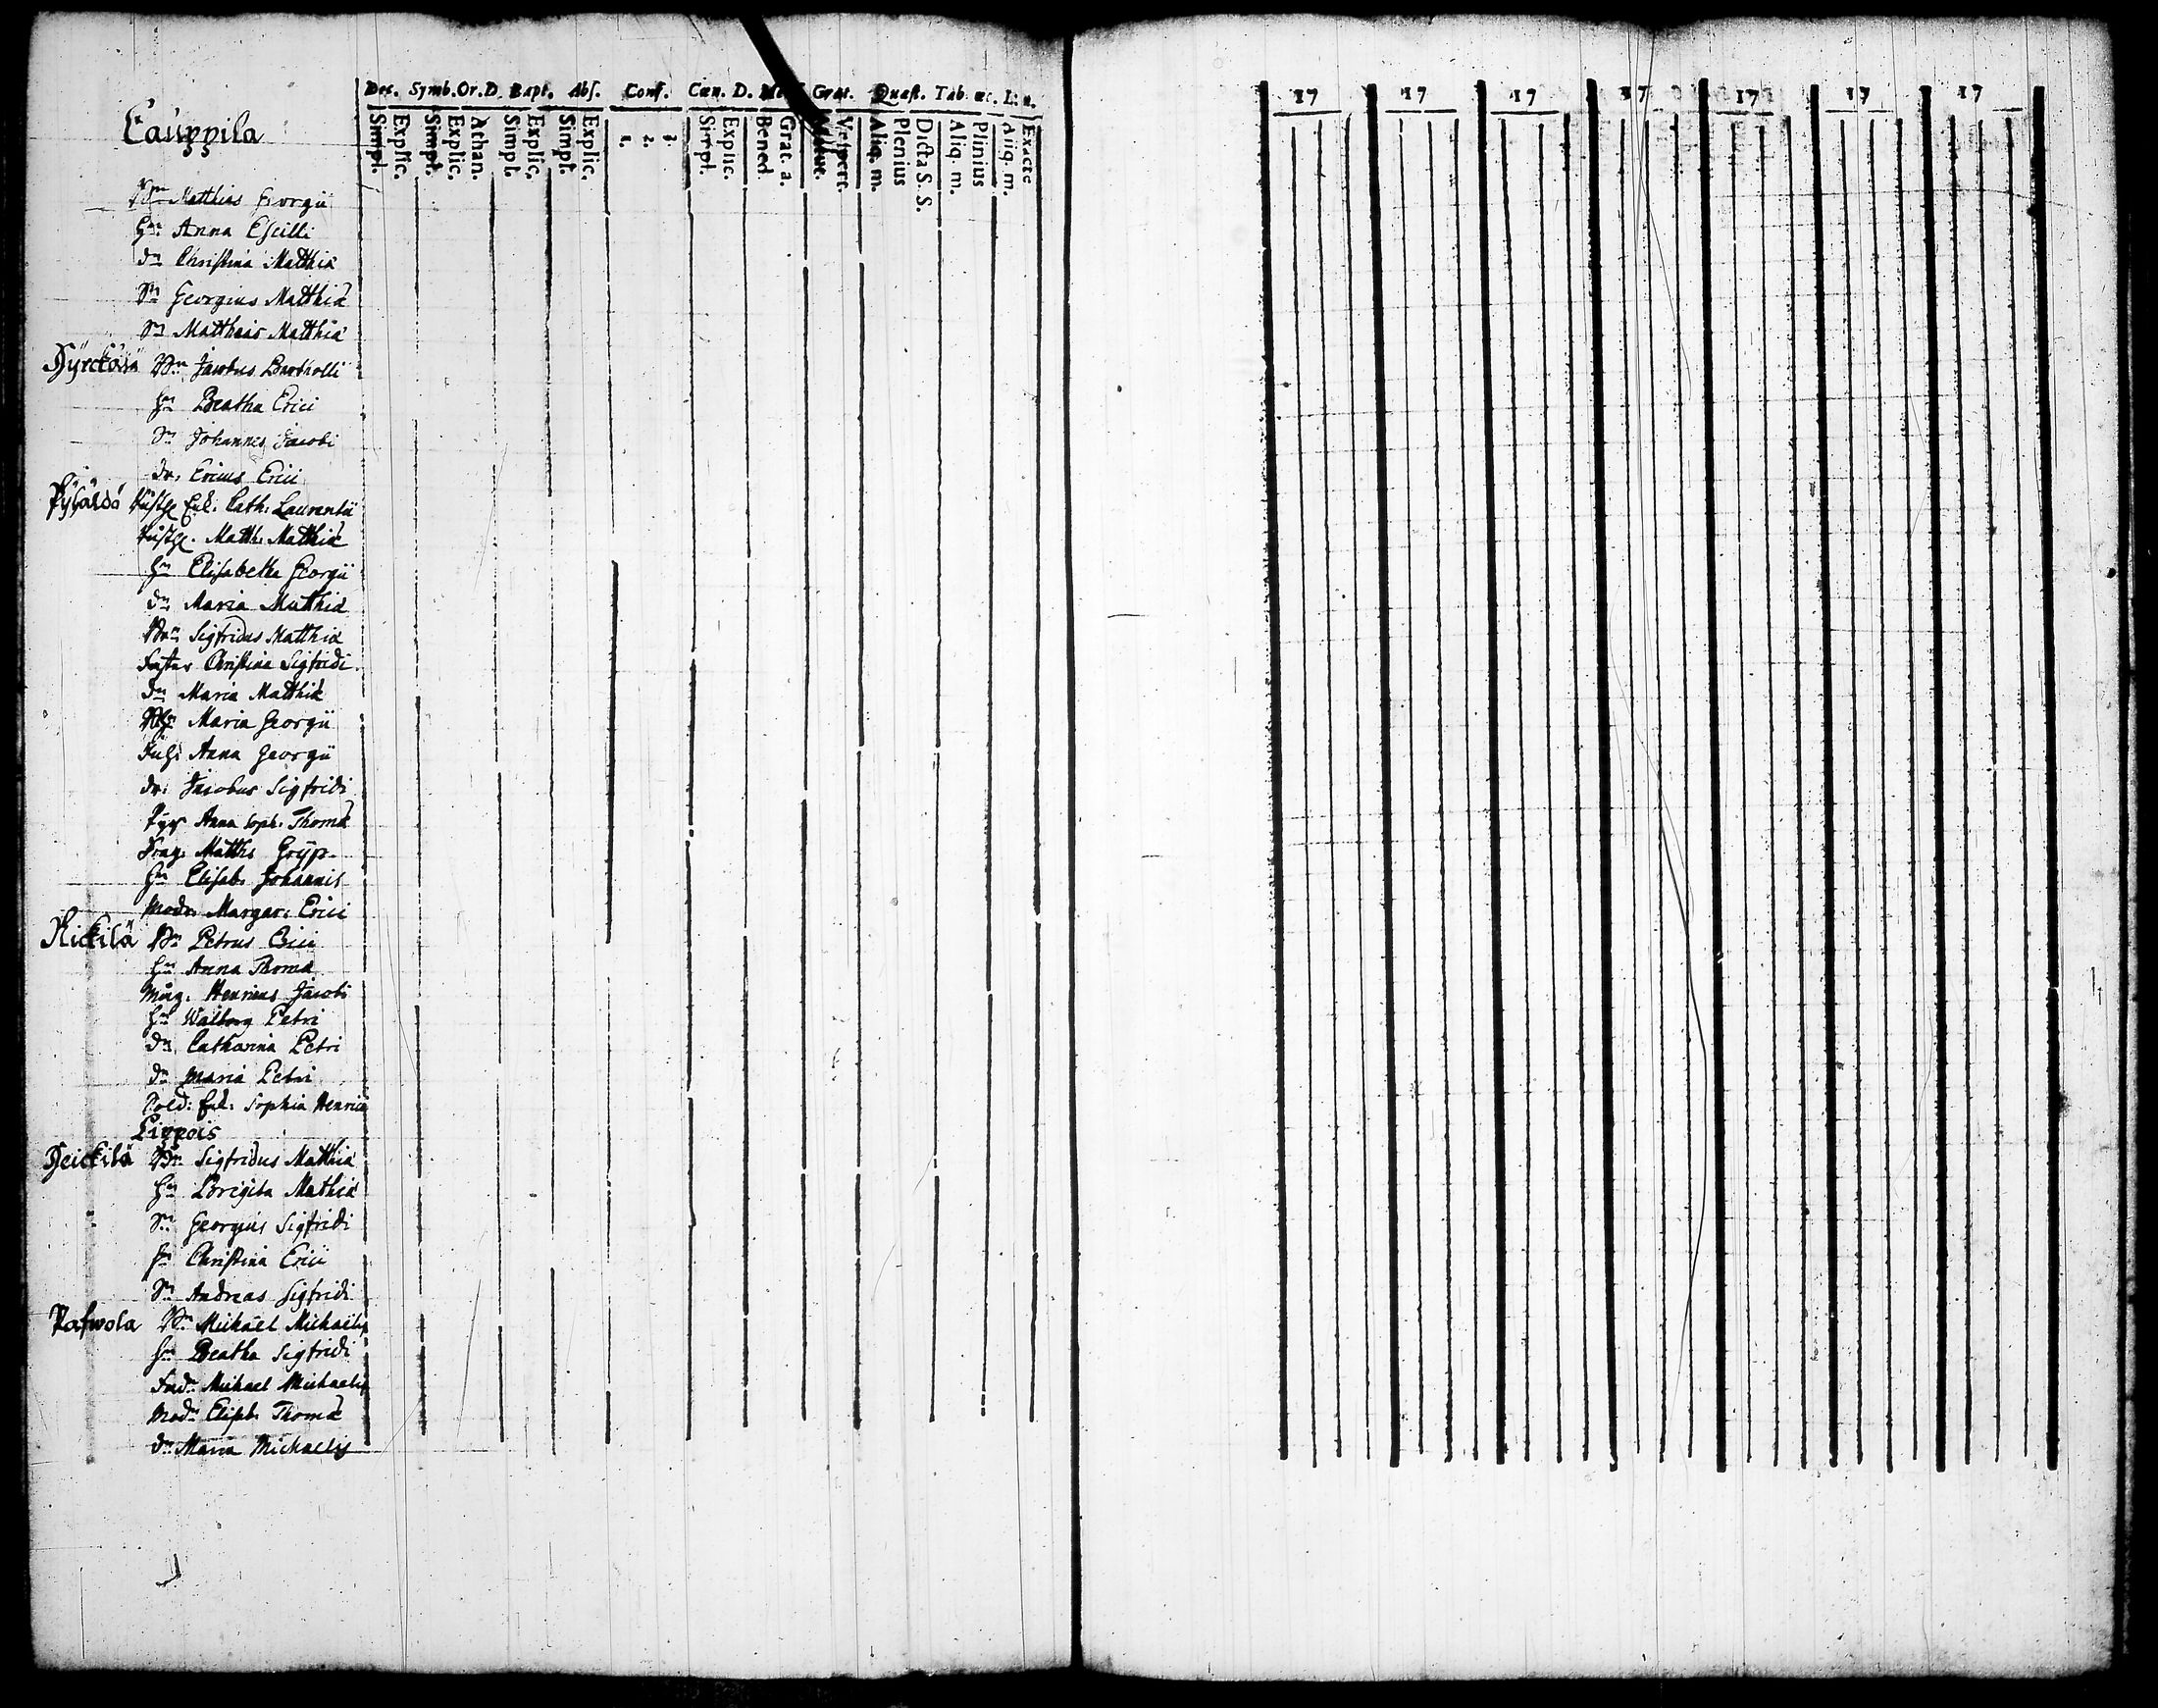 Dec. Symb. Or. D. Bapt. Abs. Conf. Cœn. D. Grat. Quæst. Tab. œc.
Simpl. Explic. Simpl. Explic. Athan. Simpl. Explic. Simpl. Explic. 1. 2. 3. Simpl. Explic. Bened. Grat. a. Vespert. Aliq. m. Plenius Dicta S. S. Aliq. m. Plinius Aliq. m. Exacte
17 17 17 17 17 17 17
Cauppila
Matthias Georgii
Hu: Anna Escilli
dr Christina Matthiæ
Sn Georgius Matthiæ
Sn Matthias Matthiæ
Jacobus Bartholli
hu Beatha Erici
Sn Johannes Jacobi
dr. Ericus Erici
Enk: Cath: Laurentii
Matth: Matthiæ
hu Elisabetha Georgii
dr Maria Matthiæ
Sigfridus Matthiæ
Christina Sigfridi
dr Maria Matthiæ
Maria Georgii
Anna Georgii
dr: Jacobus Sigfridi
Pyg Anna Soph: Thomæ
Drag: Matths Gryp
hu Elisab. Johannis
Modr Margar: Erici
Rickilä Bn Petrus Erici
hu Anna Thomæ
Måg. Henricus Jacobi
hu Walborg Petri
dr Catharina Petri
dr Maria Petri
Sold: Enk: Sophia Henrici
Lippois
Heickilä Bn Sigfridus Matthiæ
hu Brigita Mathiæ
Sn Georgius Sigfridi
hu Christina Erici
Sn Andreas Sigfridi
Pafwola Bn Michaël Michaëlis
hu Beatha Sigfridi
Fadr Michael Michaelis
Modr Elisab. Thomæ
dr Maria Michaelis